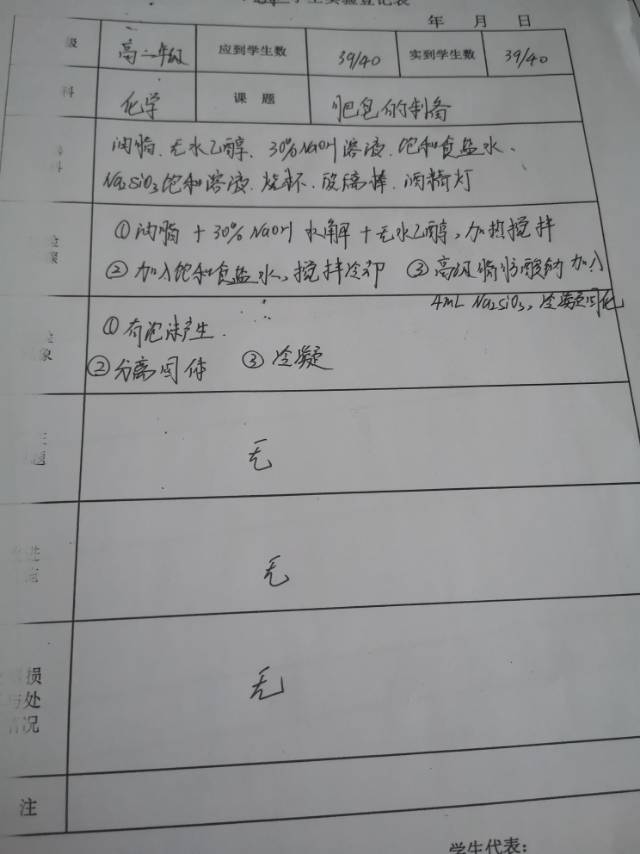 学生实验登记表
年 月 日
级 高二年级 应到学生数 39/40 实到学生数 39/40
科 化学 课 题 肥皂的制备
油脂、无水乙醇、30%NaOH溶液、饱和食盐水、
料 Na₂SiO₃饱和溶液、烧杯、玻璃棒、酒精灯
①油脂+30% NaOH 水解+无水乙醇,加热搅拌
骤 ②加入饱和食盐水,搅拌冷却 ③高级脂肪酸钠加入
4mL Na₂SiO₃,冷凝固化
①有泡沫产生.
象 ②分离固体 ③冷凝
无
题
进 无
损 无
与处
情况
注
学生代表: